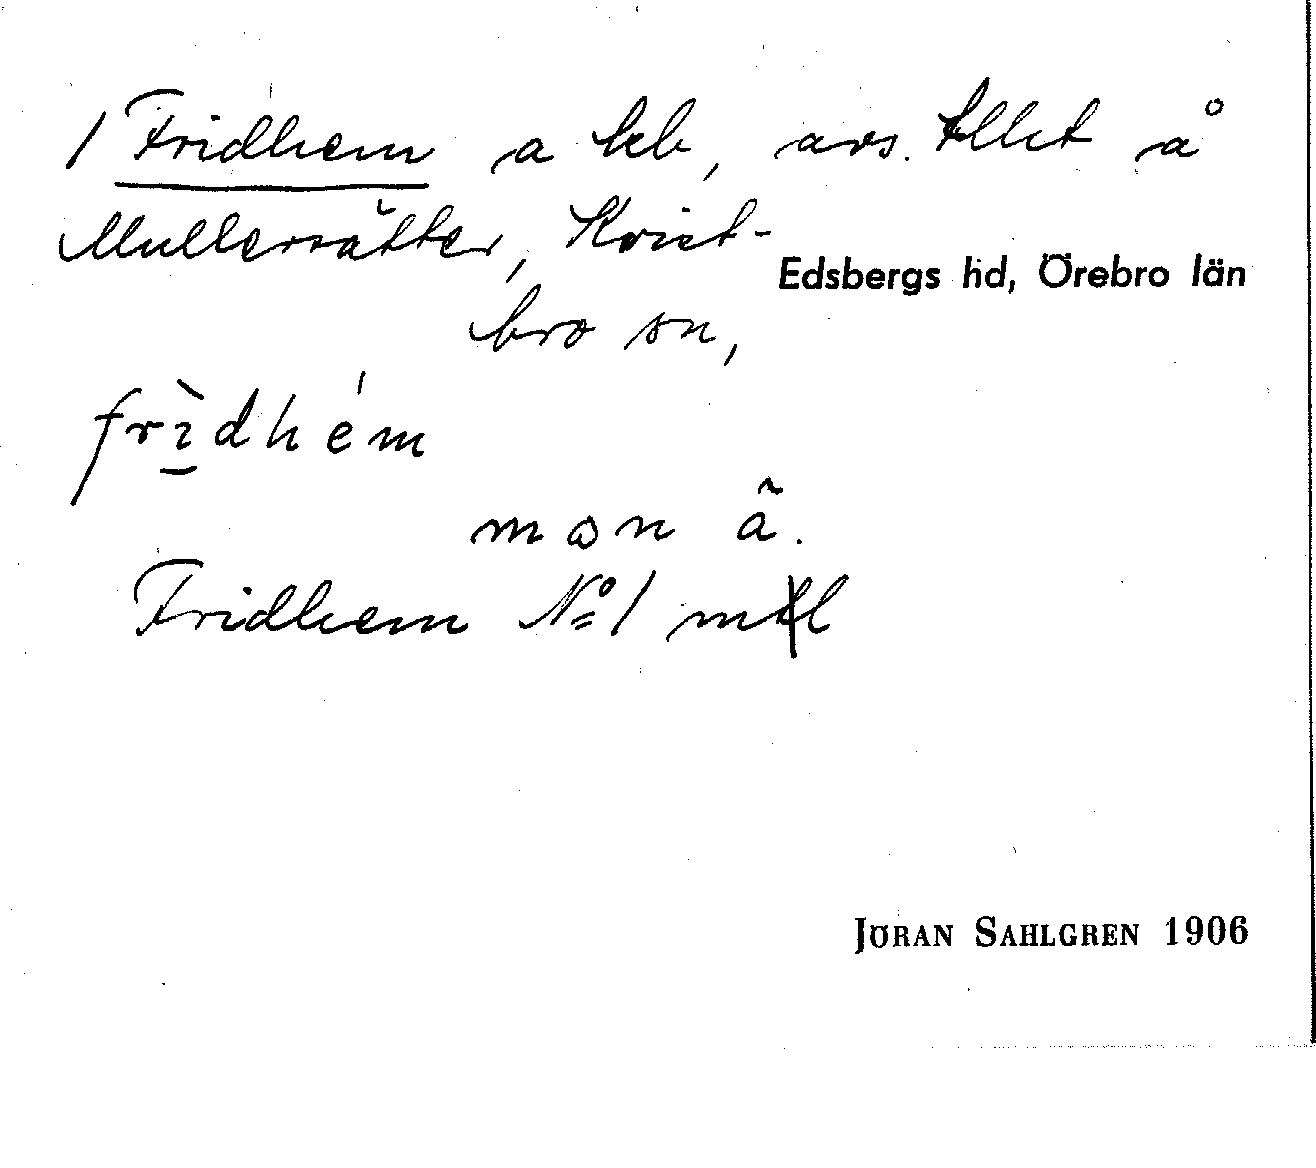 1 Fridhem a keb, avs. tllct å
Mullersätter, Kvist-
Edsbergs hd, Örebro län
bro sn,
frìdhém
man ã.
Fridhem No 1 mtl
JÖRAN SAHLGREN 1906